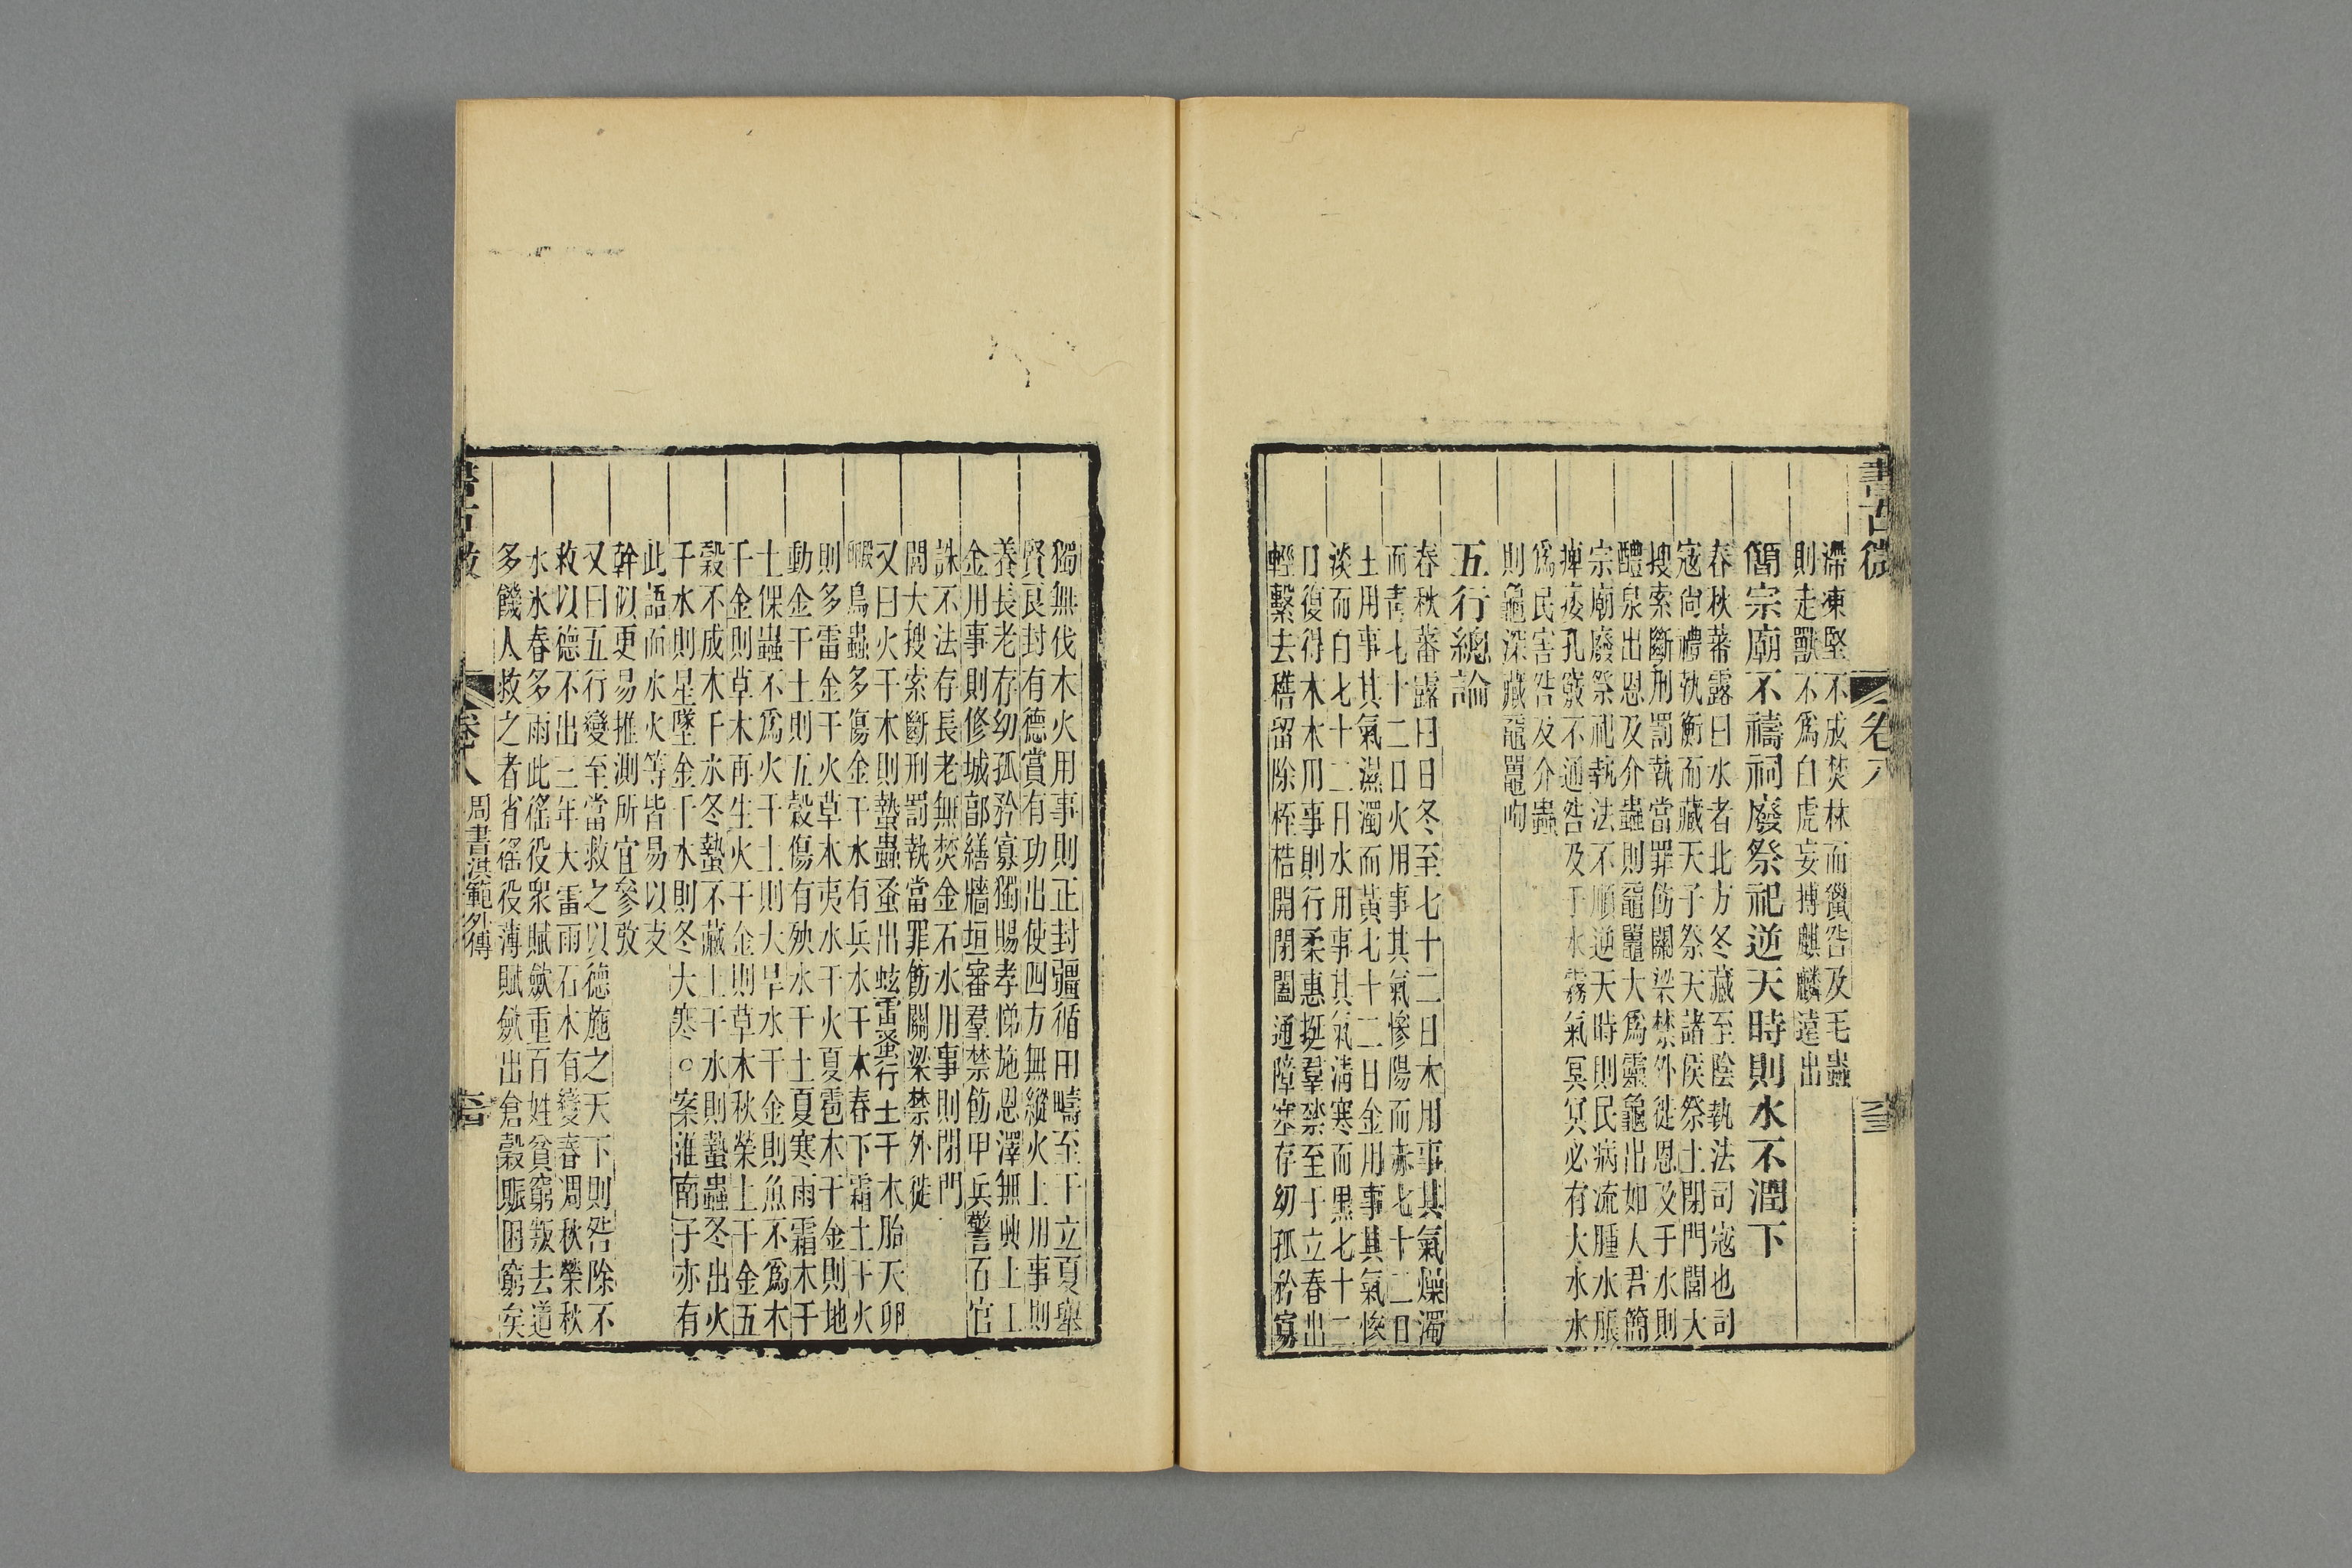 書古微
卷八
滯凍堅不成焚林而獵咎及毛蟲
則走獸不爲白虎妄搏麒麟遠出
簡宗廟不禱祠廢祭祀逆天時則水不潤下
春秋蕃露曰水者北方冬藏至陰執法司寇也司
寇尙禮執衡而藏天子祭天諸侯祭土閉門閭大
搜索斷刑罰執當罪飭關梁禁外徙恩及于水則
醴泉出恩及介蟲則黿鼉大爲靈龜出如人君簡
宗廟廢祭祀執法不順逆天時則民病流腫水脹
痺痿孔竅不通咎及于水霧氣冥冥必有大水水
爲民害咎及介蟲
則龜深藏黿鼉呴
五行總論
春秋蕃露曰日冬至七十二日木用事其氣燥濁
而靑七十二日火用事其氣慘陽而赤七十二日
土用事其氣濕濁而黃七十二日金用事其氣慘
淡而白七十二日水用事其氣淸寒而黑七十二
日復得木木用事則行柔惠挺羣禁至于立春出
輕繫去稽留除桎梏開閉闔通障塞存幼孤矜寡
獨無伐木火用事則正封疆循田疇至于立夏舉
賢良封有德賞有功出使四方無縱火土用事則
養長老存幼孤矜寡獨賜孝悌施恩澤無興土工
金用事則修城郭繕牆垣審羣禁飭甲兵警百官
誅不法存長老無焚金石水用事則閉門
閭大搜索斷刑罰執當罪飭關梁禁外徙
又曰火干木則蟄蟲蚤出蚿雷蚤行土干木胎夭卵
毈鳥蟲多傷金干木有兵水干木春下霜土干火
則多雷金干火草木夷水干火夏雹木干金則地
動金干土則五穀傷有殃水干土夏寒雨霜木干
土倮蟲不爲火干土則大旱水干金則魚不爲木
干金則草木再生火干金則草木秋榮土干金五
穀不成木干水冬蟄不藏土干水則蟄蟲冬出火
干水則星墜金干水則冬大寒○案淮南子亦有
此語而水火等皆易以支
幹似更易推測所宜參攷
又曰五行變至當救之以德施之天下則咎除不
救以德不出三年大雷雨石木有變春凋秋榮秋
木氷春多雨此徭役衆賦斂重百姓貧窮叛去道
多饑人救之者省徭役薄賦斂出倉穀賑困窮矣
卷八
周書洪範外傳